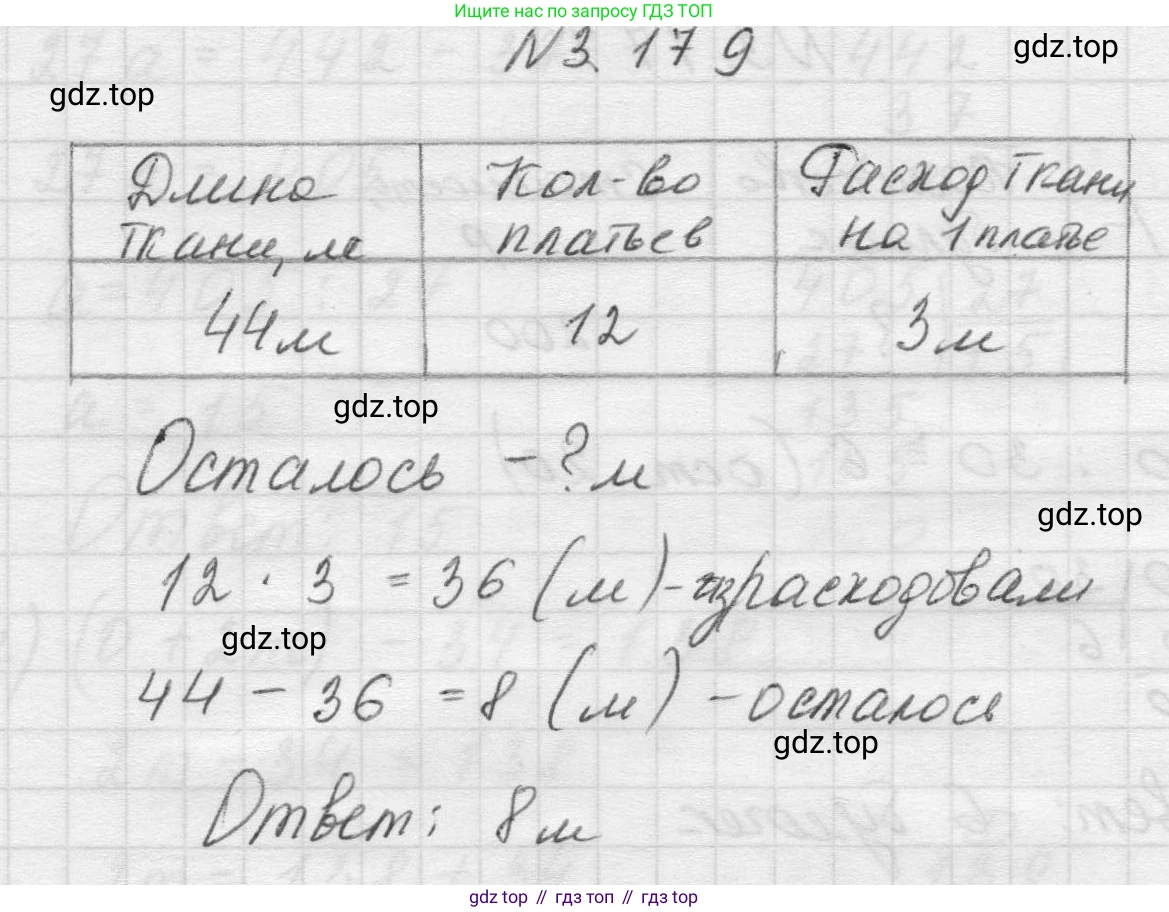 Ищите нас по запросу ГДЗ ТОП
№3.179
gdz.top
gdz.top
Длина ткани, м
Кол-во платьев
Расход ткани на 1 платье
44м
12
3м
gdz.top
Осталось - ? м
gdz.top
12 · 3 = 36 (м) - израсходовали
gdz.top
44 - 36 = 8 (м) - осталось
gdz.top
Ответ: 8м
gdz top // гдз топ // гдз top